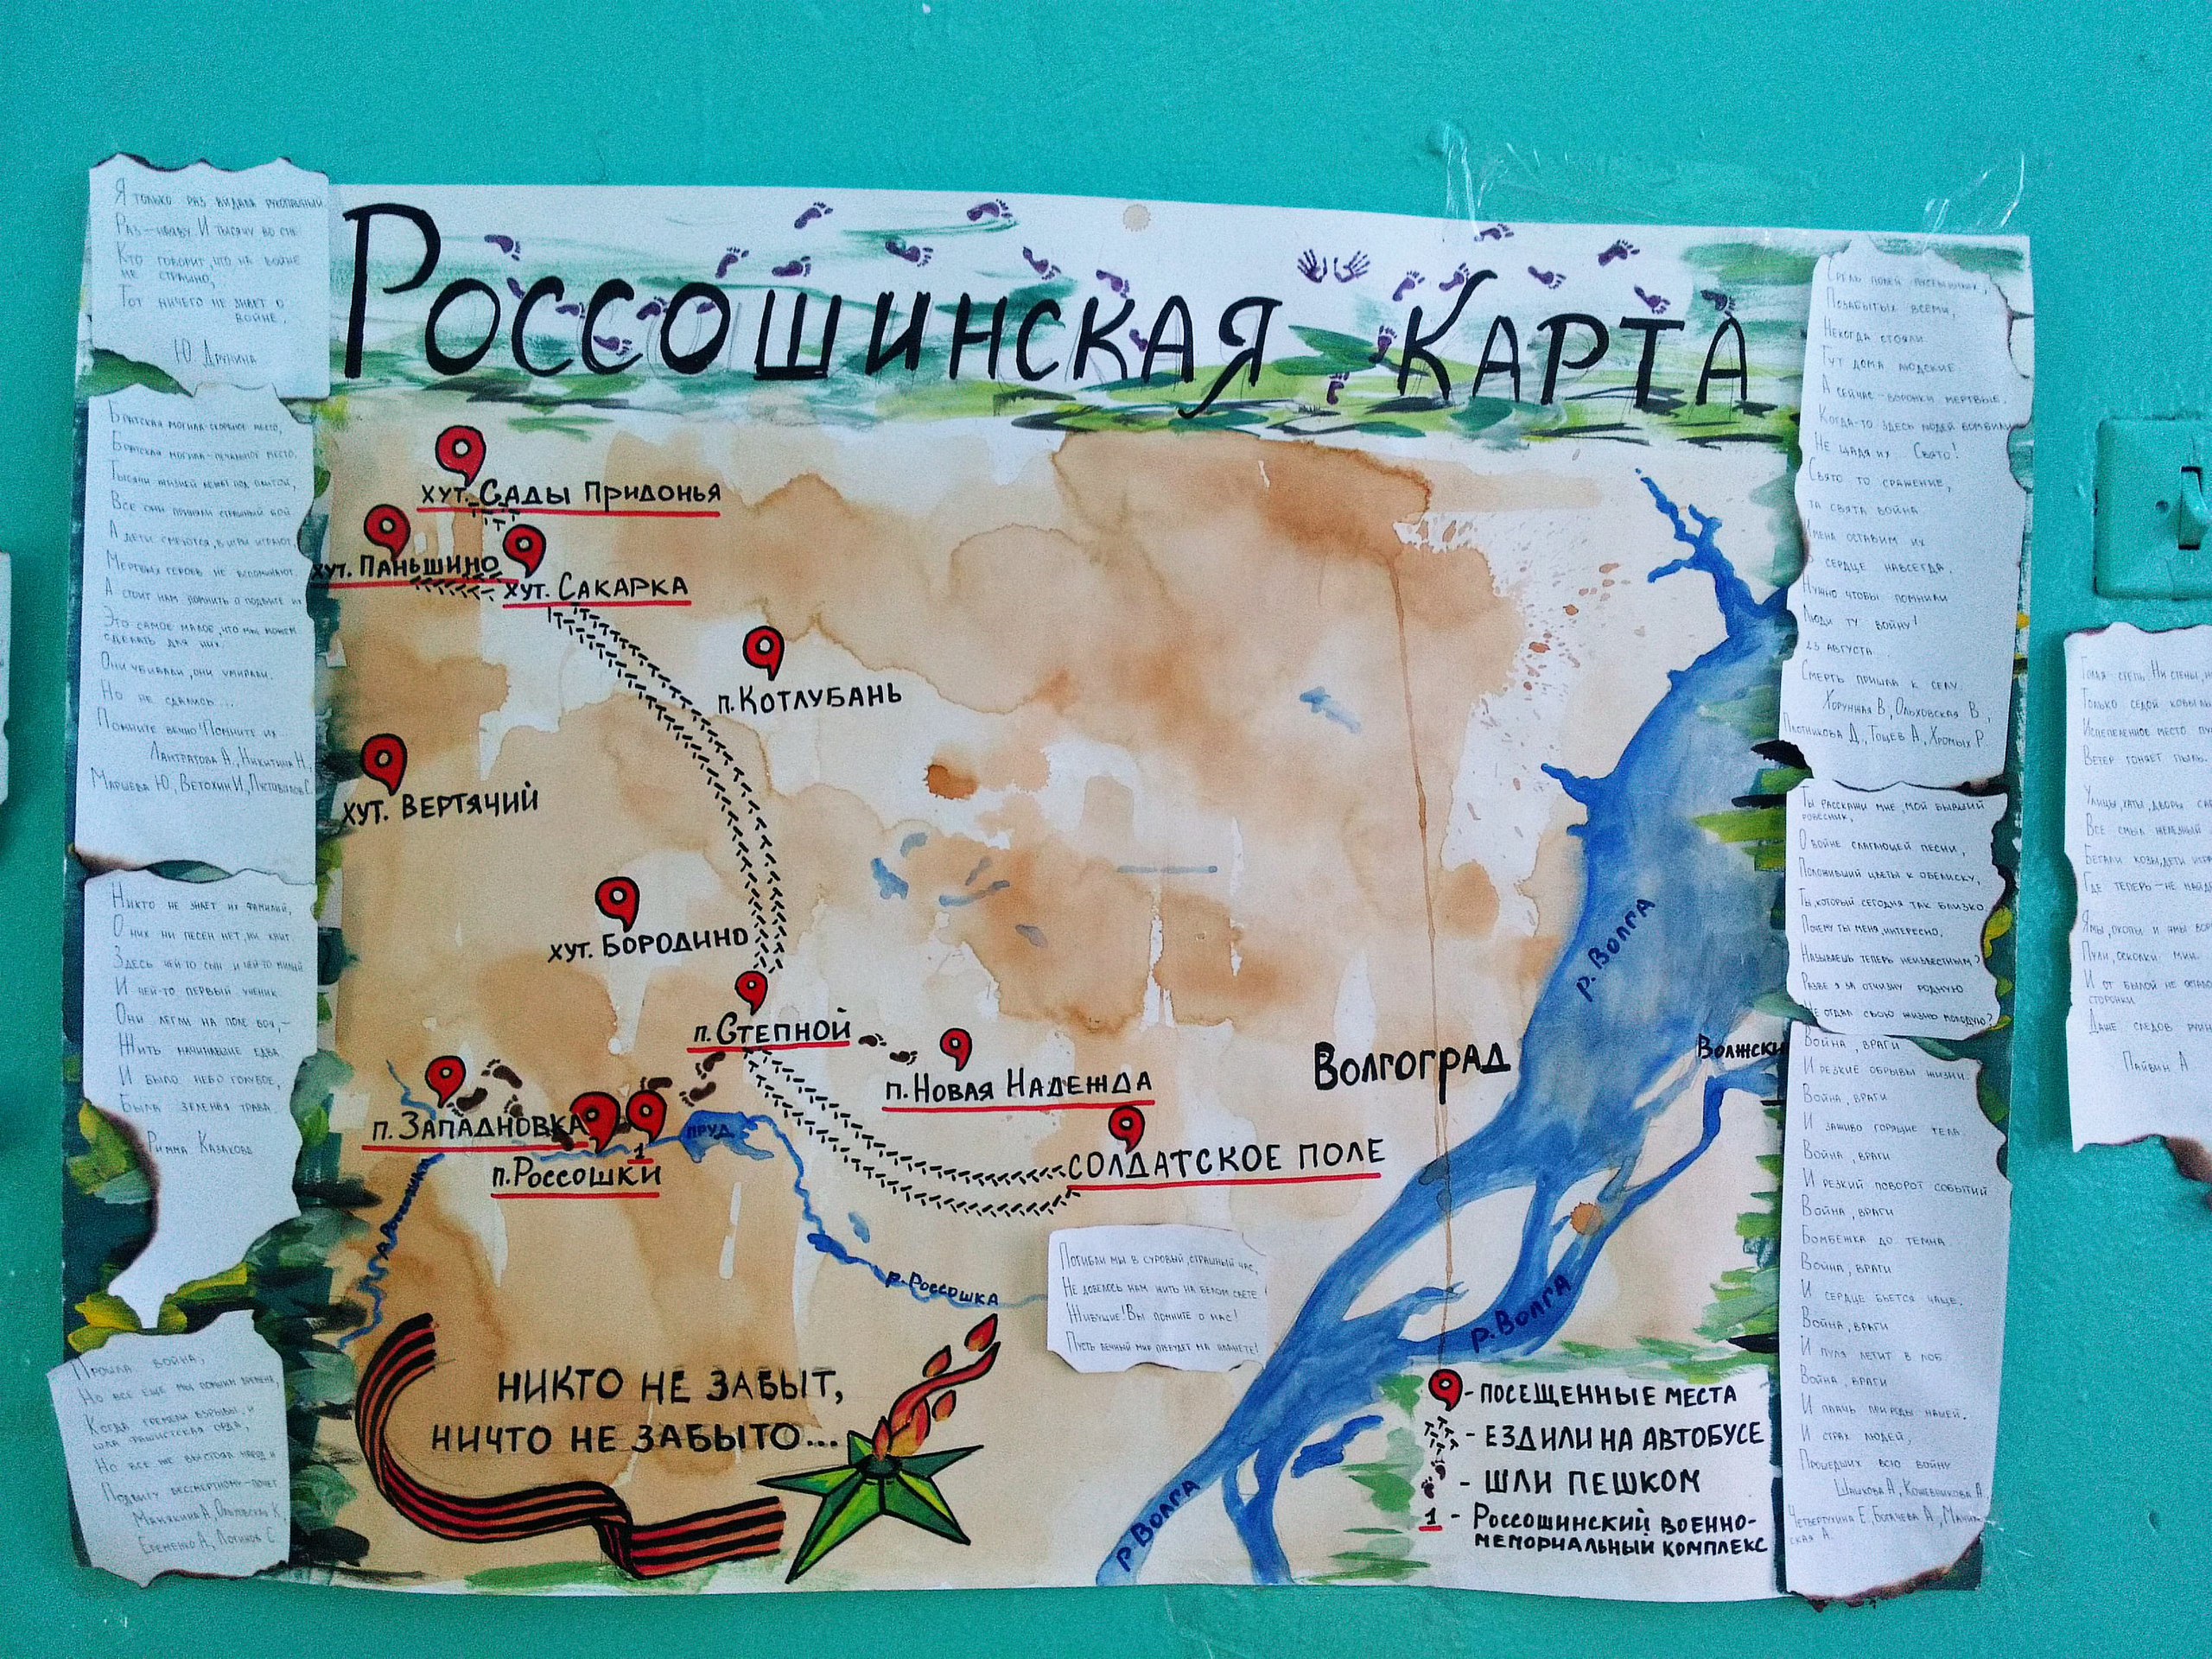 Россошинская Карта
Я только раз видала рукопашный.
Раз—наяву. И тысячу во сне
Кто говорит, что на войне
не страшно,
Тот ничего не знает о
войне.
Ю. Друнина
Братская могила-скорбное место,
Братская могила-печальное место.
Тысячи жизней лежат под плитой,
Все они приняли страшный бой
А дети смеются, в игры играют,
Мертвых героев не вспоминают.
А стоит нам помнить о подвиге их
Это самое малое, что мы можем
сделать для них.
Они убивали, они умирали.
Но не сдались...
Помните вечно! Помните их
Лантратова А., Никитина Н.,
Маршева Ю., Ветохин И., Пустовалов С.
Никто не знает их фамилий,
О них ни песен нет, ни книг.
Здесь чей-то сын и чей-то милый
И чей-то первый ученик.
Они легли на поле боя,—
Жить начинавшие едва
И было небо голубое,
Была зеленая трава.
Римма Казакова
Прошла война,
Но все еще мы помним времена,
Когда гремели взрывы, и
шла фашистская орда,
Но все же выстоял народ и
Подвигу бессмертному-почет
Манякина А., К.,
Еременко А., Логинов С.
хут. Сады Придонья
хут. Паньшино
хут. Сакарка
п. Котлубань
хут. Вертячий
хут. Бородино
п. Степной
п. Новая Надежда
п. Западновка
1
пруд
п. Россошки
Солдатское поле
Волгоград
Волжски
р. Волга
р. Россошка
р. Волга
р. Волга
Погибли мы в суровый, страшный час,
Не довелось нам жить на белом свете!
Живущие! Вы помните о нас!
Пусть вечный мир пребудет на планете!
Никто не забыт,
ничто не забыто...
- посещенные места
- ездили на автобусе
- шли пешком
1 - Россошинский военно-
мемориальный комплекс
Средь полей пустынных,
Позабытых всеми,
Некогда стояли
Тут дома людские.
А сейчас-воронки мертвые.
Когда-то здесь людей бомбили
Не щадя их Свято!
Свято то сражение,
та свята война
Имена оставим их
сердце навсегда.
Нужно чтобы помнили
Люди ту войну!
23 августа...
Смерть пришла к селу
Хорунжая В., Ольховская В.,
Плотникова Д., Тощев А., Хромых Р.
Ты расскажи мне, мой бывший
ровесник,
О войне слагающей песни,
Положивший цветы к обелиску,
Ты, который сегодня так близко,
Почему ты меня, интересно,
Называешь теперь неизвестным?
Разве я за отчизну родную
Не отдал свою жизнь молодую?
Война, враги
И резкие обрывы жизни.
Война, враги
И заживо горящие тела
Война, враги
И резкий поворот событий
Война, враги
Бомбежка до темна
Война, враги
И сердце бьется чаще.
Война, враги
И пуля летит в лоб
Война, враги
И плачь природы нашей.
И страх людей,
Прошедших всю войну
Шашкова А., Кожевникова А.
Четвертухина Е., Богачева А.,
ская А.
Голая степь. Ни стены,
Только седой ковыль
Испепеленное место
Ветер гоняет пыль.
Улицы, хаты, дворы
Все смыл железный
Бегали козы, дети
Где теперь—не
Ямы, окопы и ямы
Пули, осколки мин.
И от былой не
сторонки
Даже следов
Пайвин А.